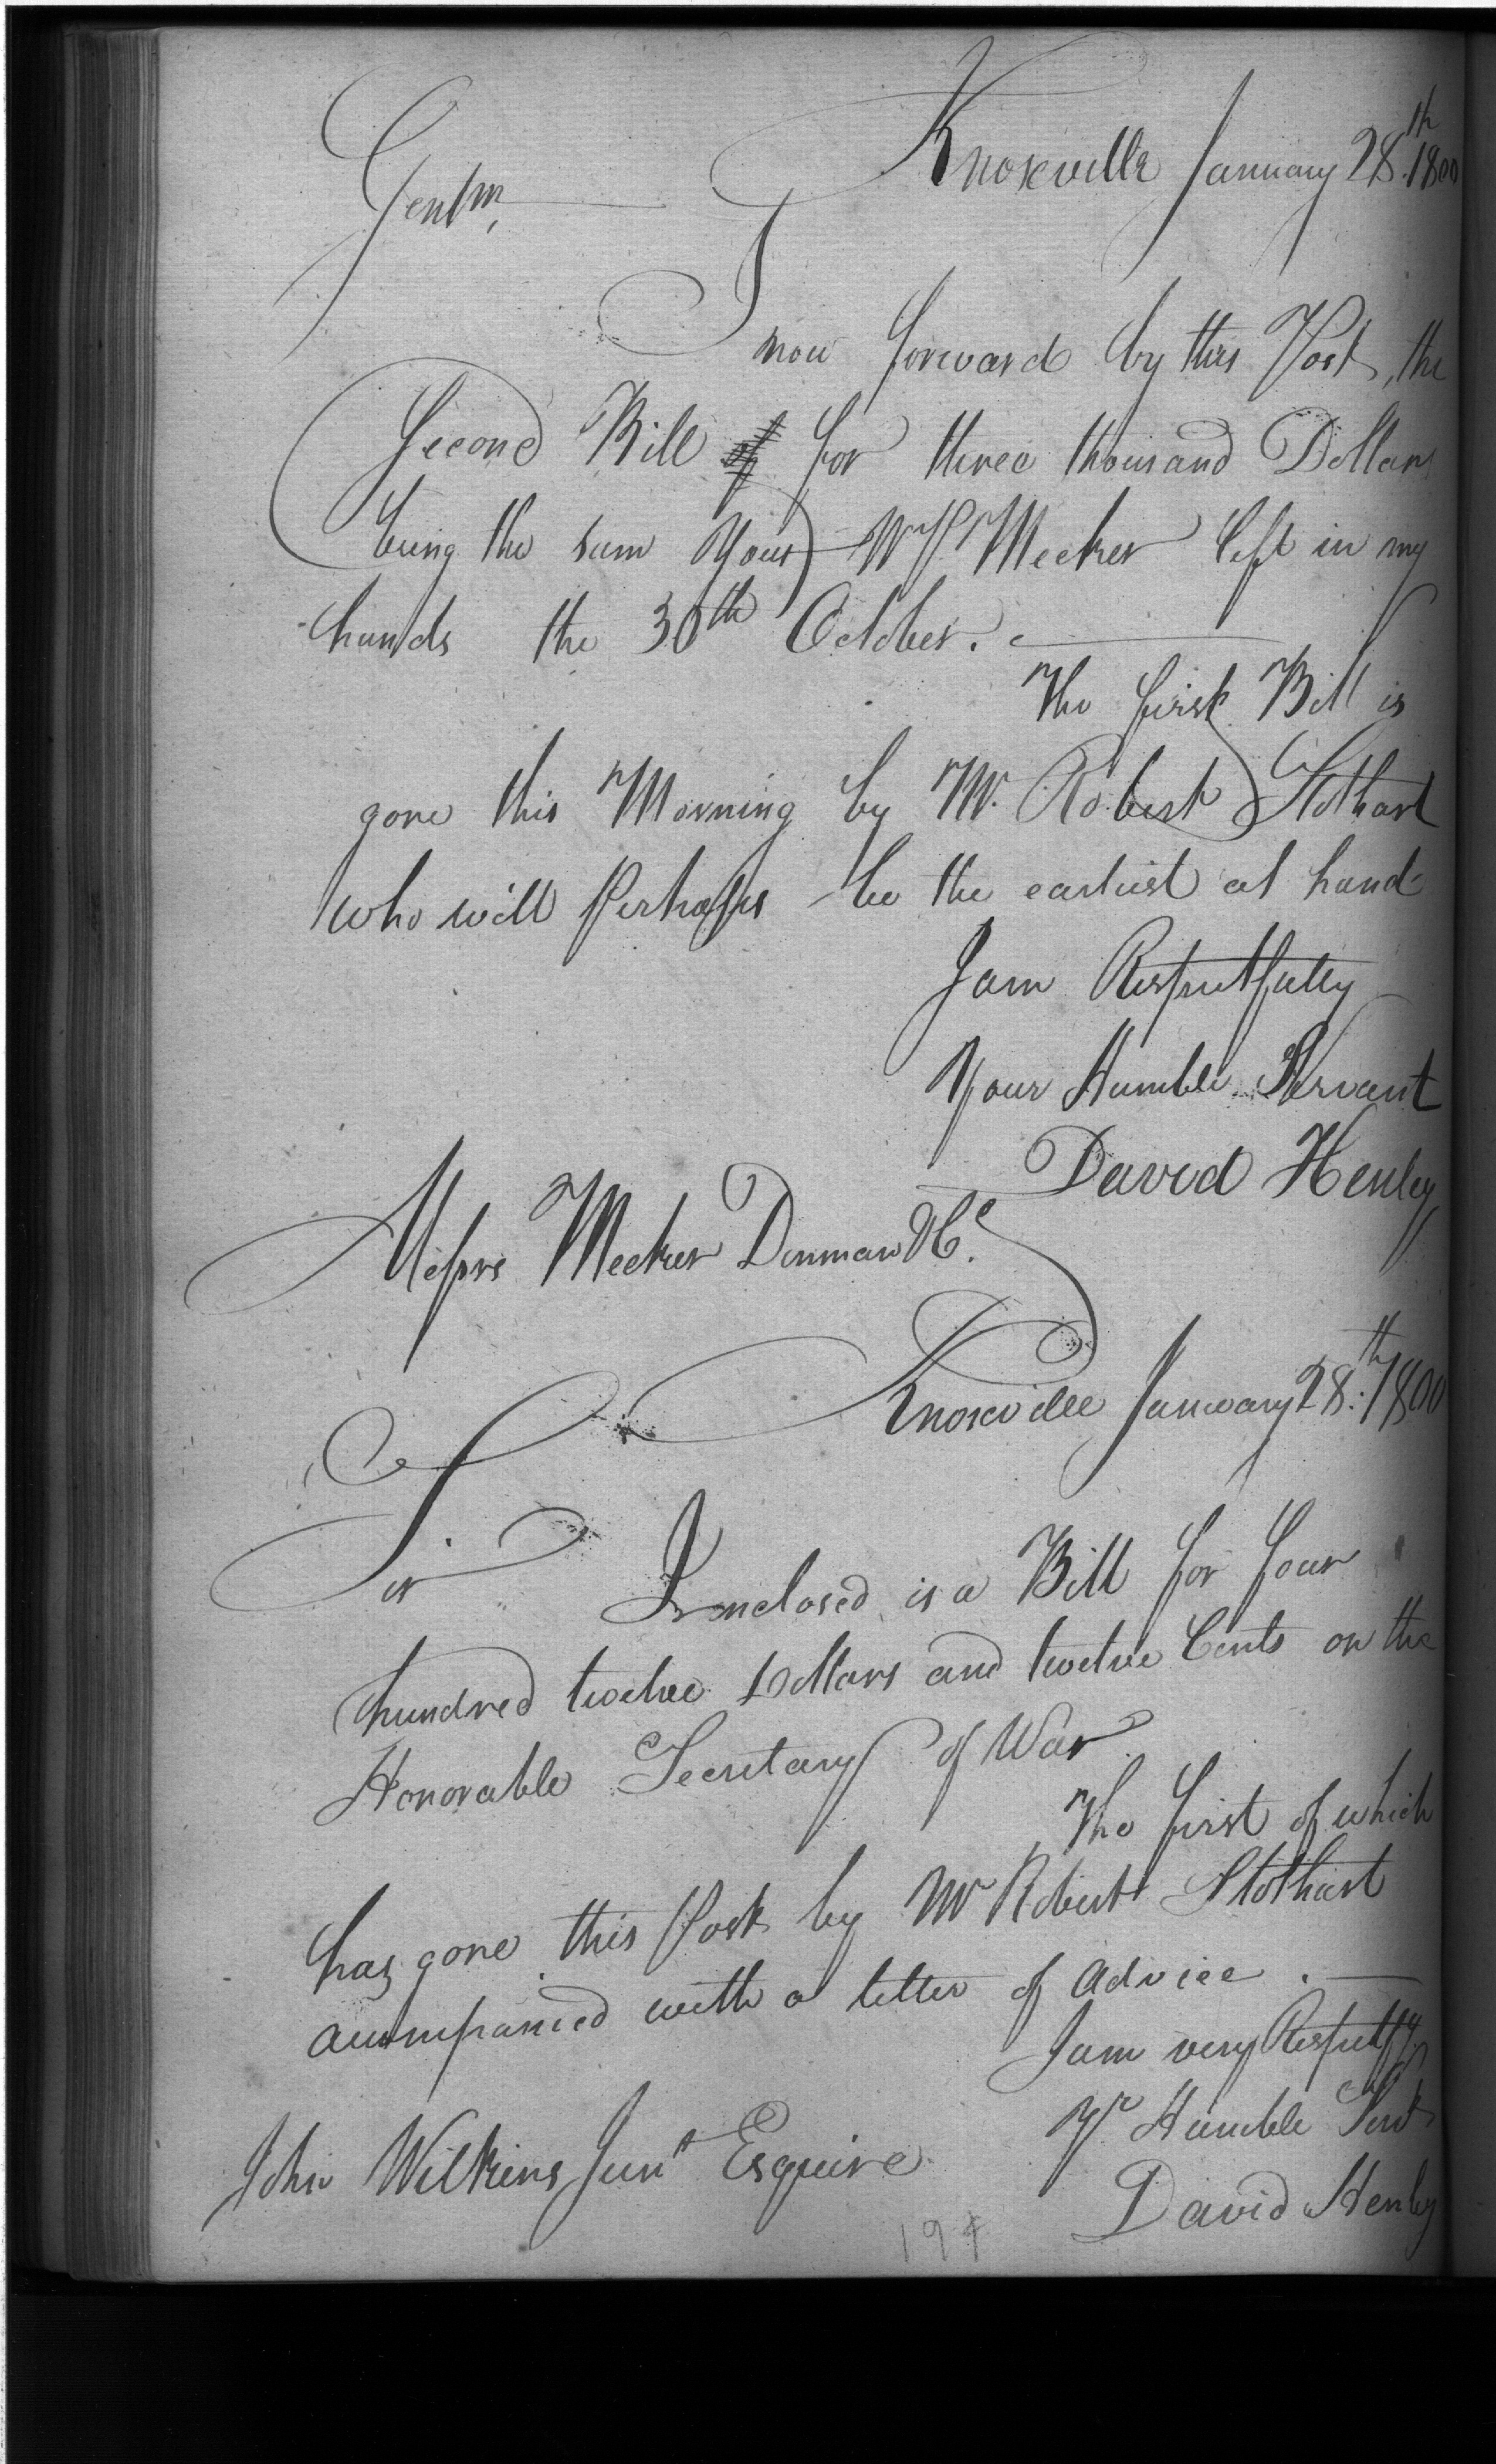 Knoxville January 28.th 1800
Gentm,
I
now forward by this Post, the
Second Bill of for three thousand Dollars
being the sum Your Meeker left in my
hands the 30th October.
The first Bill is
gone this Morning by Mr. Robert Stothart
who will Perhaps be the earliest at hand
I am Respectfully
Your Humble Servant
David Henley
Messrs Meeker Denman & Co.
Knoxville January 28.th 1800
Sir
Inclosed is a Bill for four
hundred twelve Dollars and twelve Cents on the
Honorable Secretary of War
The first of which
has gone this Post by Mr Robert Stothart
accompanied with a letter of advice.
I am very Respectfy.
Yr Humble Servt
John Wilkins Junr Esquire
David Henley